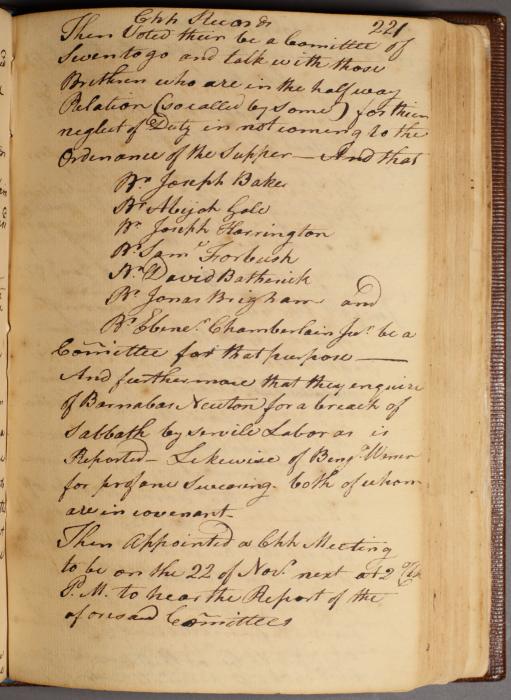 Chh Records 221
Then Voted their be a Com̄ittee of
Seven to go and talk with those
Brethren who are in the half way
Relation (so called by some) for their
neglect of Duty in not coming to the
Ordenance of the Supper — And that
Br. Joseph Baker
Br. Abijah Gale
Br. Joseph Harrington
Br. Saml. Forbush
Br. David Batherick
Br. Jonas Brigham and
Br. Ebenr. Chamberlain Junr. be a
Com̄ittee for that purpose —
And furthermore that they enquire
of Barnabas Newton for a breach of
Sabbath by servile Labor as is
Reported — Likewise of Benja.
for profane swearing. both of whom
are in covenant.
Then Appointed a Chh Meeting
to be on the 22 of Novr. next at 2
P.M. to hear the Report of the
aforesaid Com̄ittees